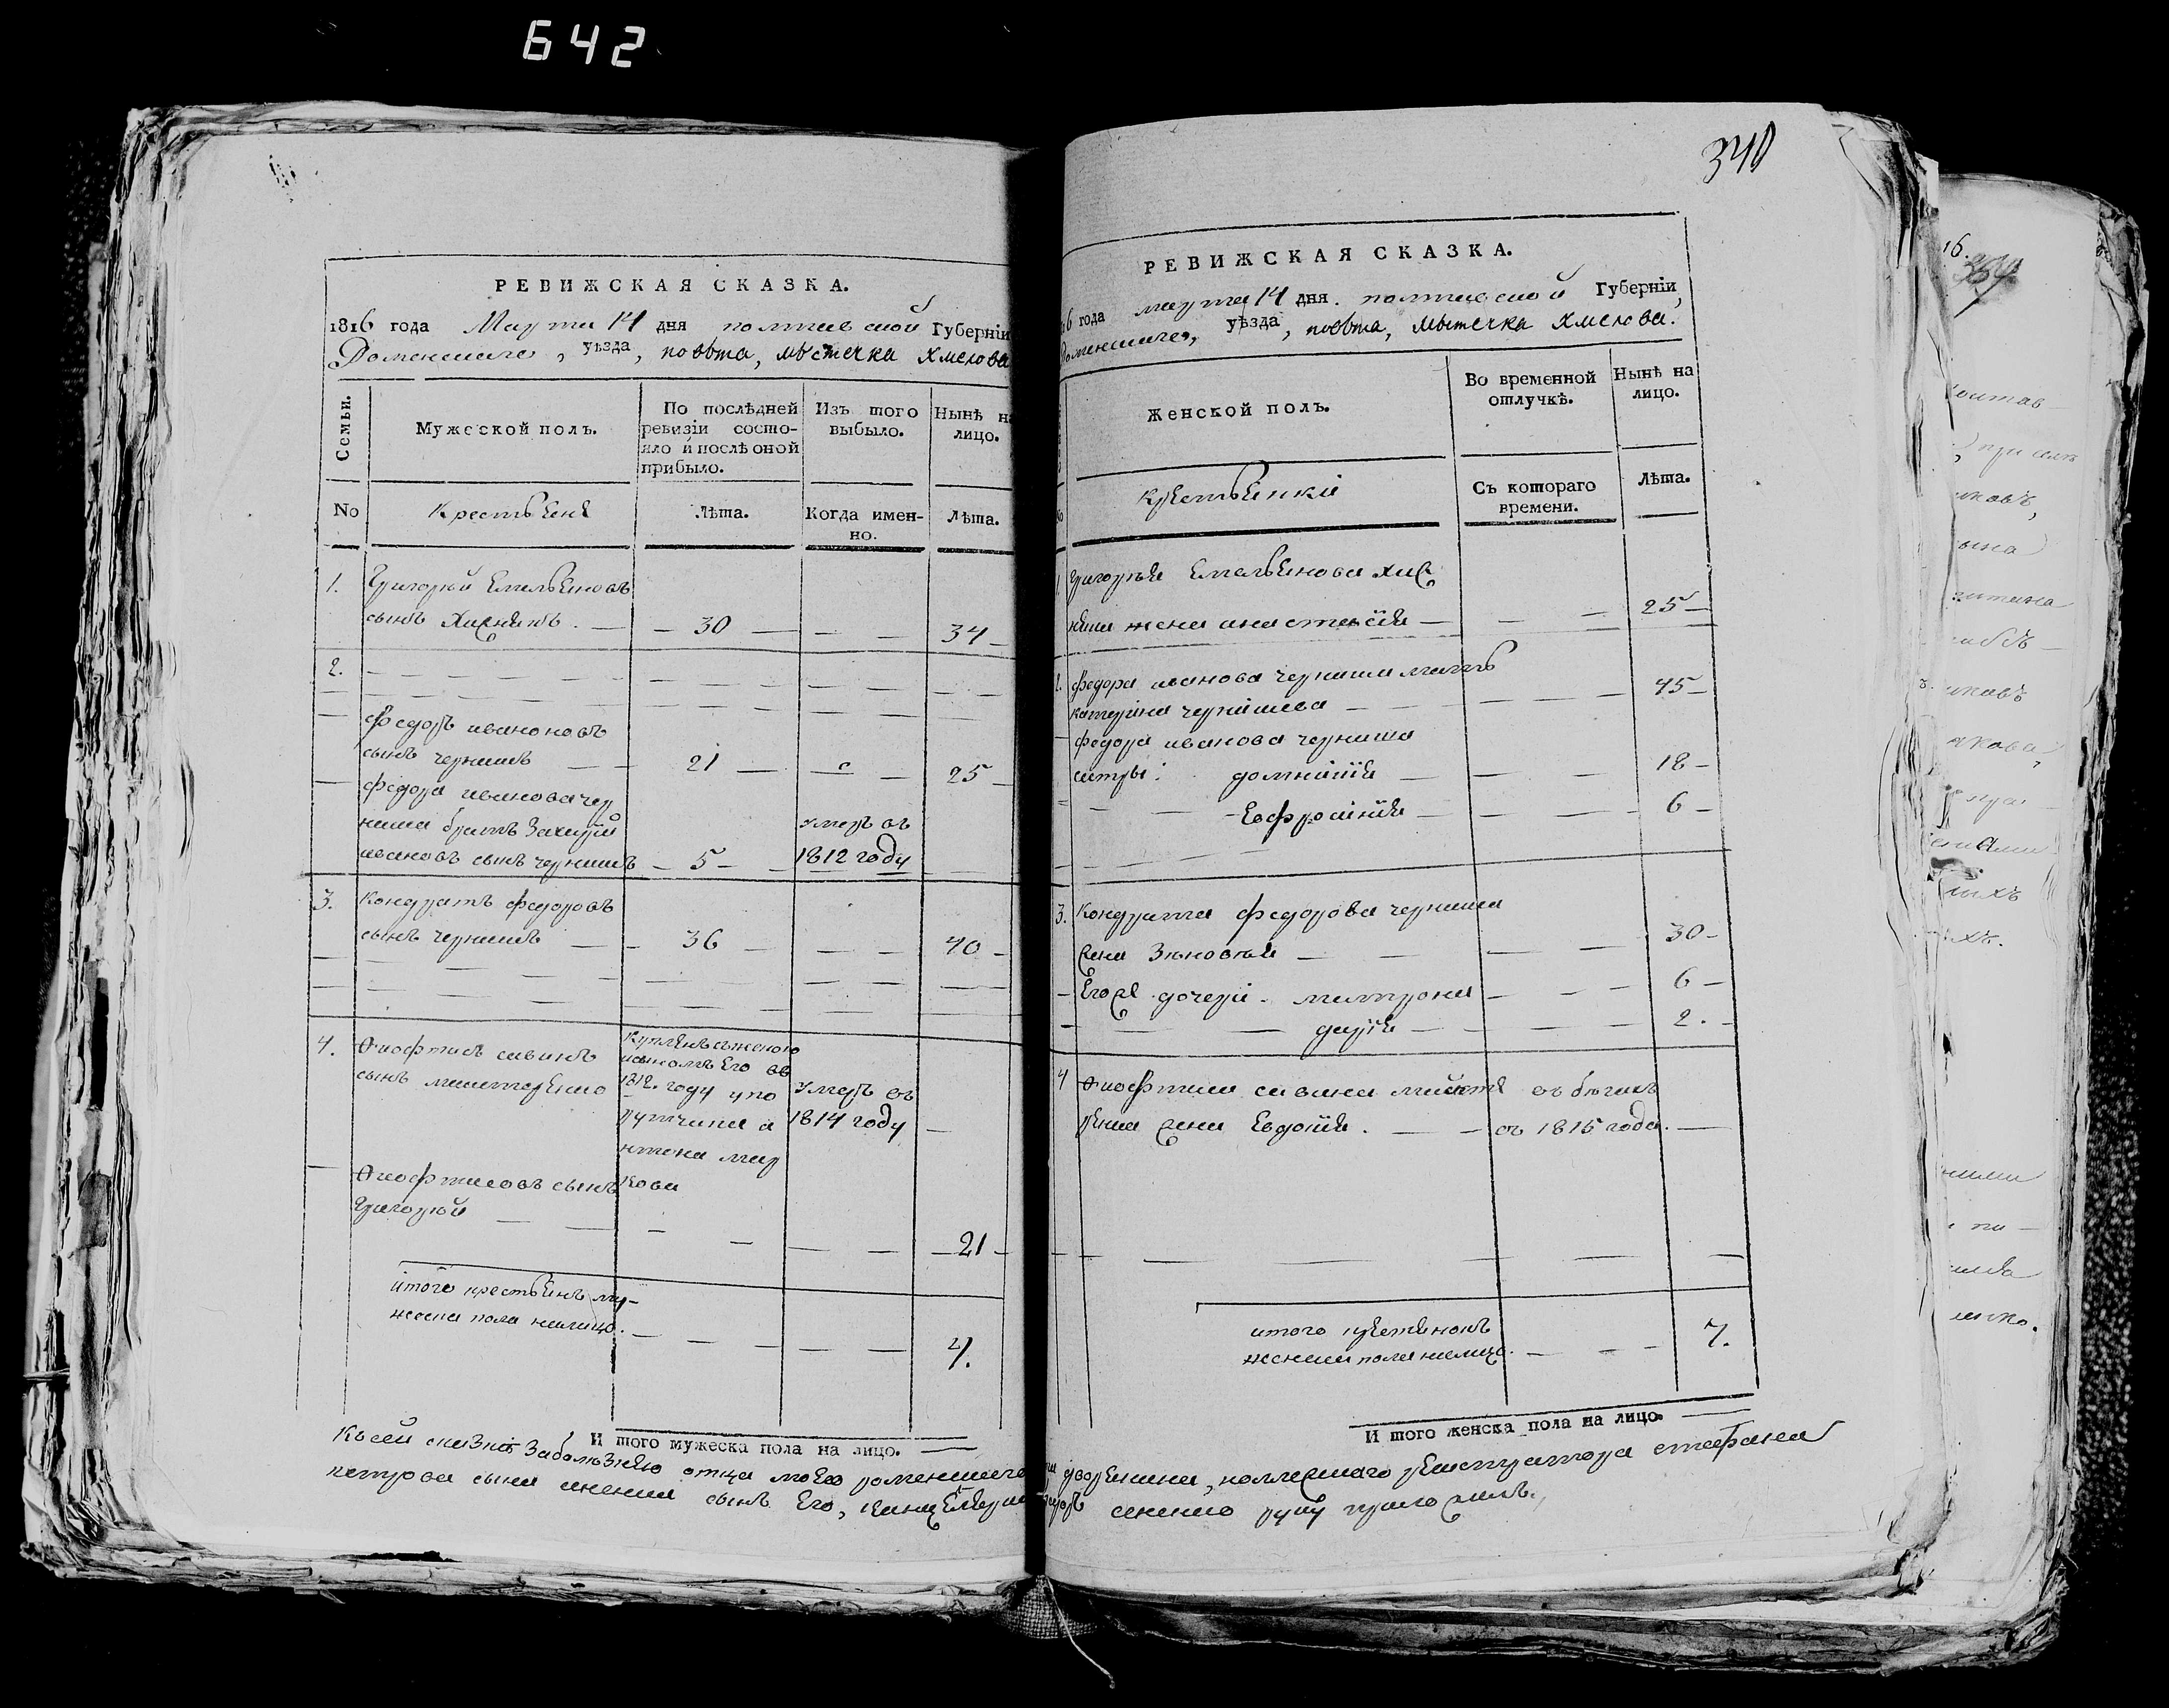 642
340
РЕВИЖСКАЯ СКАЗКА.
1816 года Марта 14 дня полтавской Губерніи
Роменскаго, уѣзда, повѣта, мѣстечка Хмелова
Семьи.
Мужеской полъ.
По послѣдней ревизіи состояло и послѣ оной прибыло.
Изъ того выбыло.
Нынѣ на лицо.
No
Крестьяне
Лѣта.
Когда именно.
Лѣта.
1. Григорий Емельяновъ
сынъ — 30 — — — 34 —
2.
Федоръ ивановъ
сынъ чернишъ — 21 — — 25 —
федора иванова чер
ниша братъ Захарій умеръ въ
ивановъ сынъ чернишъ — 5 — 1812 году
3. Кондратъ федоровъ
сынъ чернишъ — 36 — — — 40 —
4. савинъ
сынъ
купленъ съ женою
и сыномъ Его въ
1812. году у по
ручика а
нтона мар
кова
умеръ въ
1814 году
сынъ
Григорий — — — — 21 —
итого крестьянъ му-
жеска пола налицо. — — — — 4.
И того мужеска пола на лицо.
РЕВИЖСКАЯ СКАЗКА.
1816 года марта 14 дня. полтавской Губерніи,
Роменскаго, уѣзда, повѣта, мѣстечка Хмелова.
Женской полъ.
Во временной отлучкѣ.
Нынѣ на лицо.
крестьянки
Съ котораго времени.
Лѣта.
1. Григорія Емельянова
жена анастасія — — — 25 —
2. федора иванова черниша мать
катерина чернишева — — — 45 —
федора иванова черниша
сестры: домникія — — — 18 —
Ефросинія — — — 6 —
3. Кондрата федорова черниша
жена Зѣновія — — — 30 —
Егожъ дочери. матрона — — — 6 —
дарія — — — 2. —
4 савина въ бѣгахъ
жена Евдокія. — съ 1815 года. —
итого крестянокъ
женска пола налицо. — — — 7.
И того женска пола на лицо.
Къ сей сказкѣ за болѣзнію отца моего роменскаго дворянина, коллежскаго регистратора стефана
петрова сына сененка сынъ Его, канцеляристъ сененко руку приложилъ.